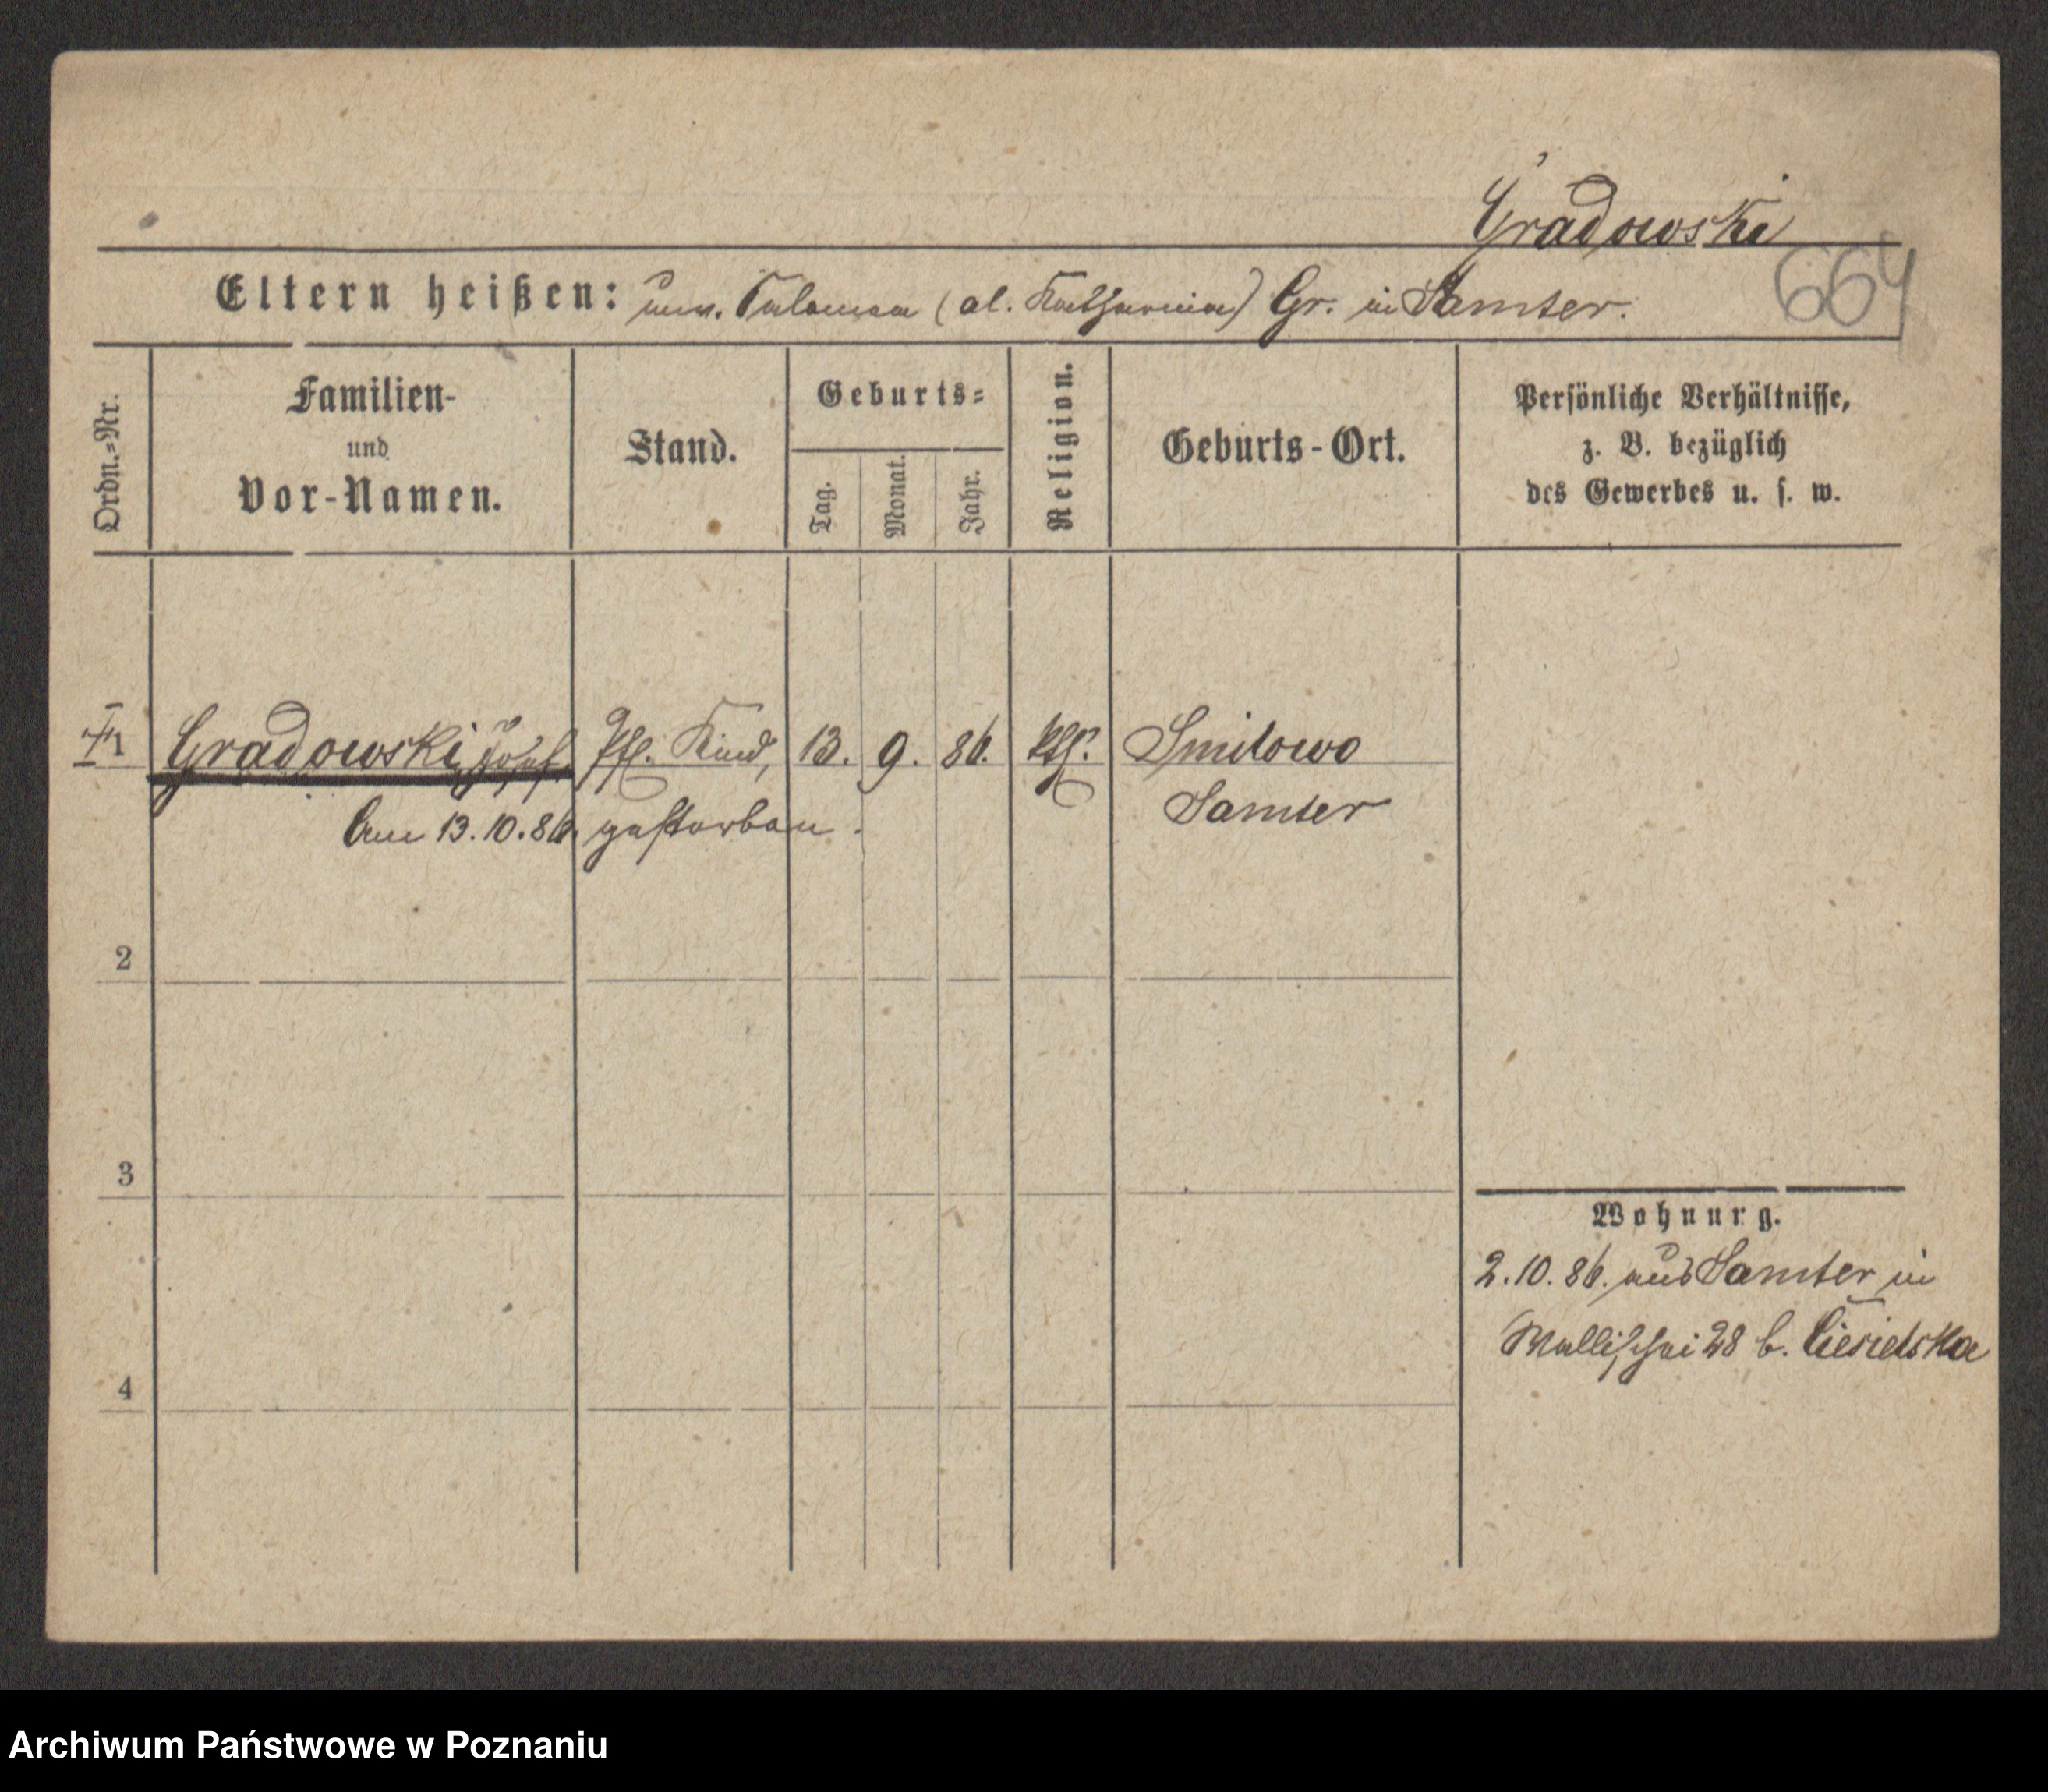 Gradowski
664
Eltern heißen: unv. Salomea (al. Katharina) Gr. in Samter.
Ordn.-Nr.
Familien-
und
Vor-Namen.
Stand.
Geburts-
Tag.
Monat.
Jahr.
Religion.
Geburts-Ort.
Persönliche Verhältnisse,
z. B. bezüglich
des Gewerbes u. s. w.
1 Gradowski, Josef. Pfl. Kind, 13. 9. 86. kth. Smilowo
Samter
Am 13.10.86. gestorben.
2
3
4
Wohnung.
2.10.86. aus Samter in
Wallischei 28 b.
Archiwum Państwowe w Poznaniu